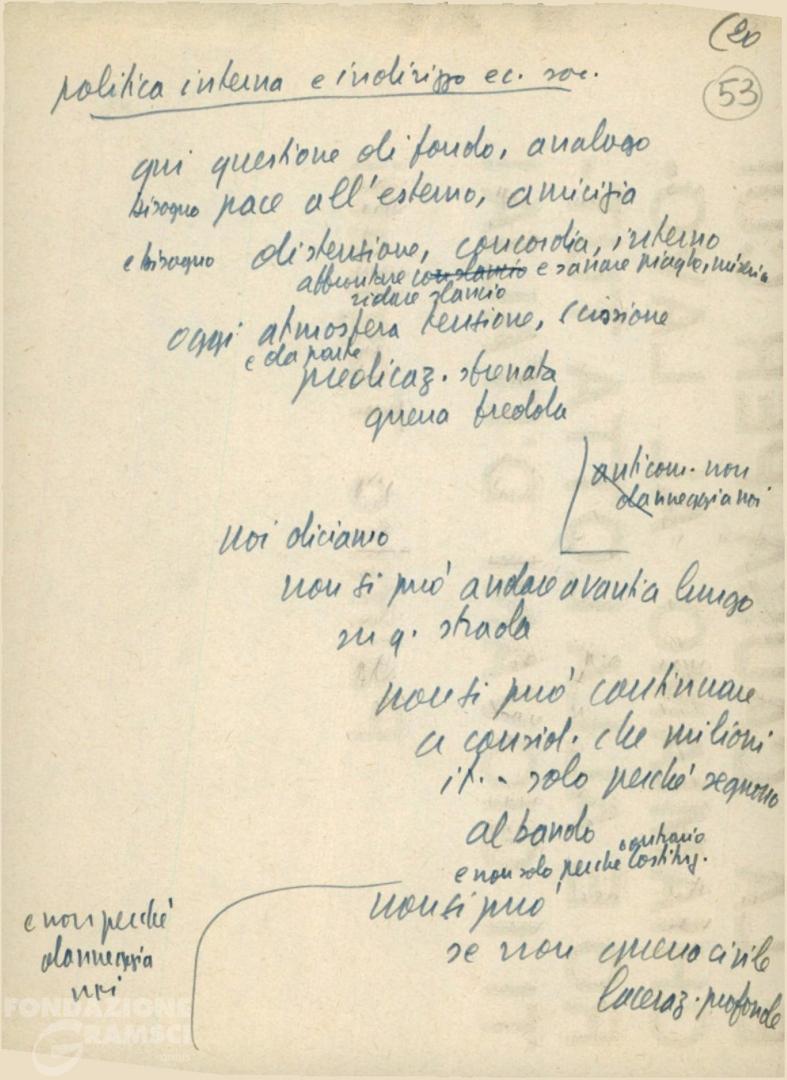 (20
53
politica interna e indirizzo ec. soc.
qui questione di fondo, analogo
bisogno pace all'esterno, amicizia
e bisogno distensione, concordia, interno
affrontare con slancio e sanare piaghe, miseria
ridare slancio
oggi atmosfera tensione, scissione
e da parte
predicaz. sfrenata
guerra fredda
anticom. non
danneggia noi
noi diciamo
non si può andare avanti a lungo
su q. strada
non si può continuare
a consid. che milioni
it. - solo perché seguono
al bando
e non solo perché contrario Costituz.
non si può
se non guerra civile
laceraz. profonde
e non perché
danneggia
noi
FONDAZIONE
GRAMSCI